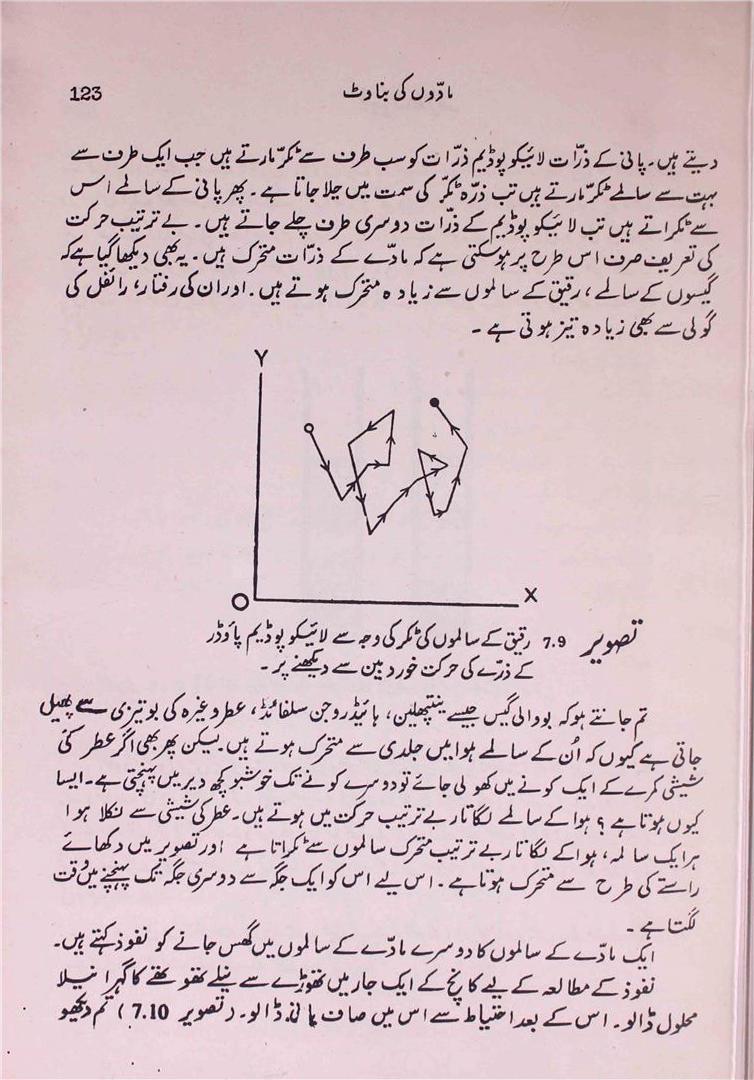 مادّوں کی بناوٹ
123
دیتے ہیں۔ پانی کے ذرّات لائیکو پوڈیم ذرّات کو سب طرف سے ٹکرّ مارتے ہیں جب ایک طرف سے
بہت سے سالمے ٹکرّ مارتے ہیں تب ذرّہ ٹکرّ کی سمت میں چلا جاتا ہے۔ پھر پانی کے سالمے اس
سے ٹکراتے ہیں تب لائیکو پوڈیم کے ذرّات دوسری طرف چلے جاتے ہیں۔ بے ترتیب حرکت
کی تعریف صرف اس طرح پر ہوسکتی ہے کہ مادّے کے ذرّات متحرک ہیں۔ یہ بھی دیکھا گیا ہے کہ
گیسوں کے سالمے، رقیق کے سالموں سے زیادہ متحرک ہوتے ہیں۔ اور ان کی رفتار، رائفل کی
گولی سے بھی زیادہ تیز ہوتی ہے۔
Y
X
O
تصویر 7.9 رقیق کے سالموں کی ٹکر کی وجہ سے لائیکو پوڈیم پاؤڈر
کے ذرّے کی حرکت خوردبین سے دیکھنے پر۔
تم جانتے ہو کہ بو والی گیس جیسے نیپتھلین، ہائیڈروجن سلفائڈ، عطر وغیرہ کی بو تیزی سے پھیل
جاتی ہے کیوں کہ اُن کے سالمے ہوا میں جلدی سے متحرک ہوتے ہیں۔ لیکن پھر بھی اگر عطر کی
شیشی کمرے کے ایک کونے میں کھولی جائے تو دوسرے کونے تک خوشبو کچھ دیر میں پہنچتی ہے۔ ایسا
کیوں ہوتا ہے؟ ہوا کے سالمے لگاتار بے ترتیب حرکت میں ہوتے ہیں۔ عطر کی شیشی سے نکلا ہوا
ہر ایک سالمہ، ہوا کے لگاتار بے ترتیب متحرک سالموں سے ٹکراتا ہے اور تصویر میں دکھائے
راستے کی طرح سے متحرک ہوتا ہے۔ اس لیے اس کو ایک جگہ سے دوسری جگہ تک پہنچنے میں وقت
لگتا ہے۔
ایک مادّے کے سالموں کا دوسرے مادّے کے سالموں میں گھس جانے کو نفوذ کہتے ہیں۔
نفوذ کے مطالعہ کے لیے کانچ کے ایک جار میں تھوڑے سے نیلے تھوتھے کا گہرا نیلا
محلول ڈالو۔ اس کے بعد احتیاط سے اس میں صاف پانی ڈالو۔ (تصویر 7.10) تم دیکھو